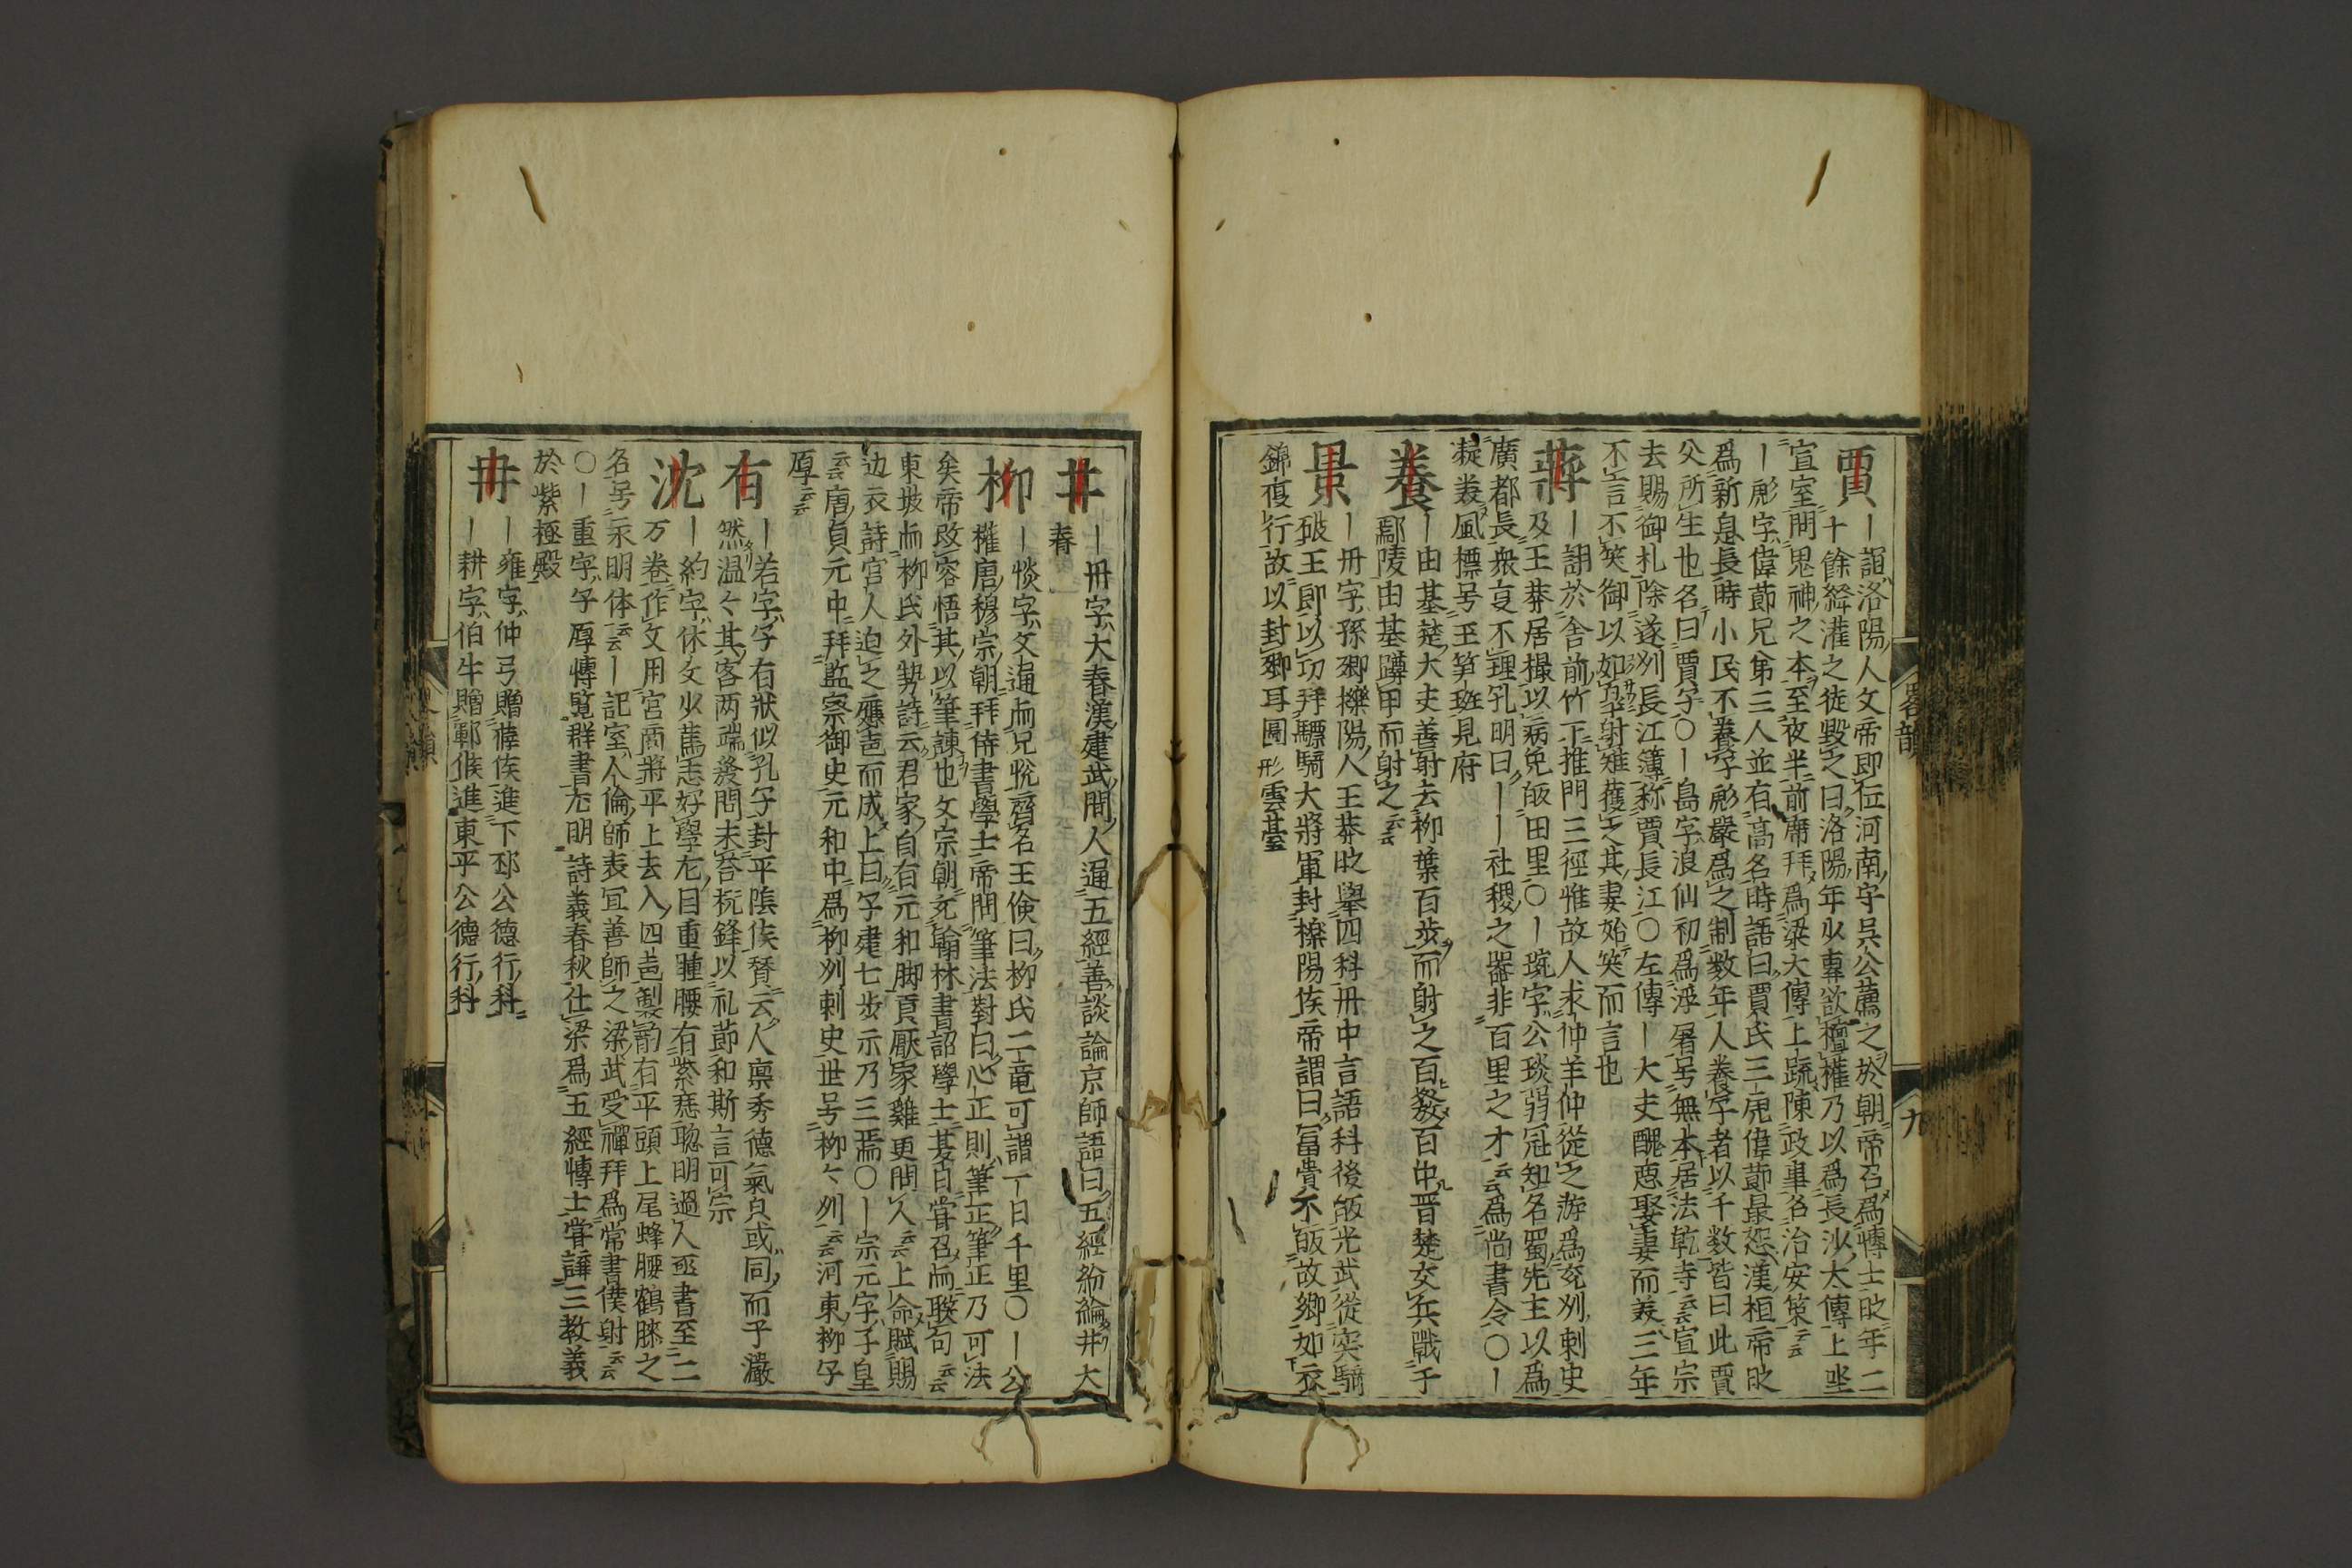 賈
｜誼洛陽人文帝即位河南守吳公薦之於朝帝召爲博士時年二
十餘絳灌之徒毀之曰洛陽年少專欲擅權乃以爲長沙太傅上坐
宣室問鬼神之本至夜半前席拜爲梁大傅上疏陳政事名治安策云云
｜彪字偉節兄弟三人並有高名時語曰賈氏三虎偉節最怒漢桓帝時
爲新息長時小民不養子彪嚴爲之制数年人養子者以千数皆曰此賈
父所生也名曰賈字〇｜島字浪仙初爲浮屠号無本居法乾寺云云宣宗
去賜御札除遂州長江簿称賈長江〇左傳｜大夫醜惡娶妻而美三年
不言不笑御以如皐射雉獲之其妻始笑而言也
蒋
｜詡於舍前竹下推門三徑惟故人求仲羊仲從之游爲兖州刺史
及王莽居攝以病免皈田里〇｜琬字公琰弱冠知名蜀先主以爲
廣都長衆㕝不理孔明曰｜｜社稷之器非百里之才云云爲尚書令〇｜
凝美風標号玉笋班見府
養
｜由基楚大夫善射去柳葉百步而射之百發百中晋楚交兵戰于
鄢陵由基蹲甲而射之云云
景
｜丹字孫卿櫟陽人王莽時擧四科丹中言語科後皈光武從突騎
破王即以功拜驃騎大將軍封櫟陽侯帝謂曰冨貴不皈故鄉如衣
錦夜行故以封卿耳圖形雲䑓
客韻
九
井
｜丹字大春漢建武間人通五經善談論京師語曰五經紛綸井大
春
柳
｜惔字文通而兄悅齊名王儉曰柳氏二竜可謂一日千里〇｜公
權唐穆宗朝拜侍書學士帝問筆法對曰心正則筆正筆正乃可法
矣帝改容悟其以筆諫也文宗朝充翰林書詔學士夏日甞召而聯句云云
東坡而柳氏外甥詩云君家自有元和脚莫厭家雞更問人云云上命賦賜
边衣詩宮人迫之應声而成上曰子建七步示乃三焉〇｜宗元字子皇
云云唐貞元中拜監察御史元和中爲柳州刺史世号柳々州云云河東柳子
厚云云
有
｜若字子有狀似孔子封平陰侯賛云人稟秀德氣皃或同而子濬
然温々其客两端發問未荅抗鋒以礼節和斯言可宗
沈
｜約字休文少篤志好學左目重瞳腰有紫痣聦明過人亟書至二
万卷作文用宮商將平上去入四声製韵有平頭上尾蜂腰鶴膝之
名号永明体云云｜記室人倫師表宜善師之梁武受禪拜爲常書僕射云云
〇｜重字子厚博覧群書尤明詩義春秋仕梁爲五經博士甞講三教義
於紫極殿
冉
｜雍字仲弓贈薛侯進下邳公德行科
｜耕字伯牛贈鄆侯進東平公德行科